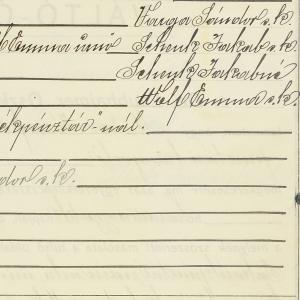 Varga Sándor s.k.
Emma ünő Schenk Jakab s.k.
Schenk Jakabné
Wolf Emma s.k.
ékpénztár"-nál.
dor s.k.